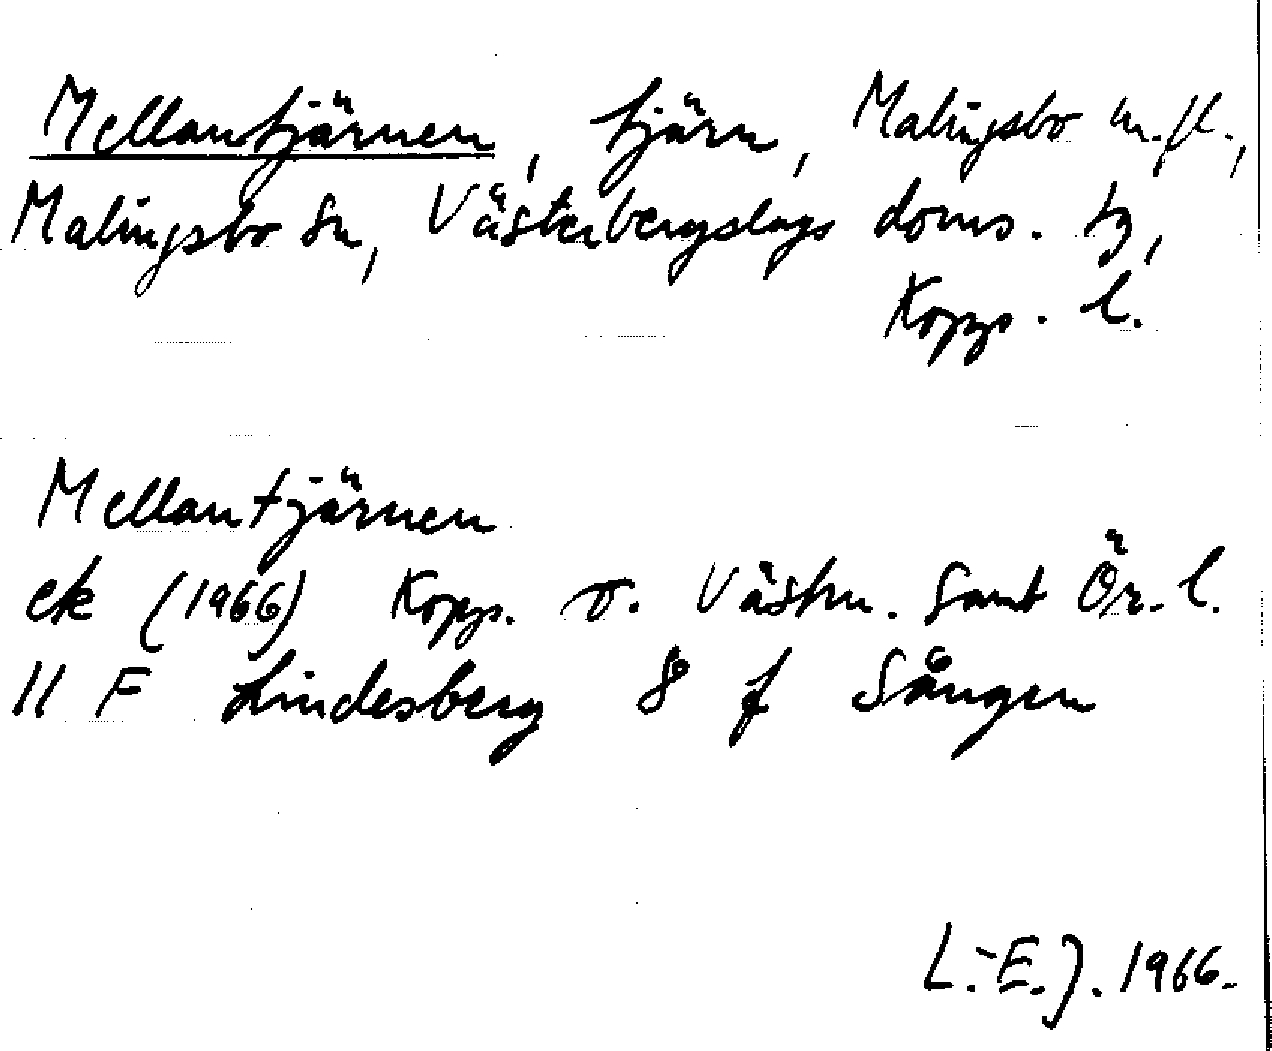 Mellantjärnen, tjärn, Malingsbo m.fl.,
Malingsbo sn, Västerbergslags doms. tg,
Kopps. l.
Mellantjärnen
ek (1966) Kopps. o. Västm. samt Ör. l.
11 F Lindesberg 8 f Sången
L.-E.J. 1966.